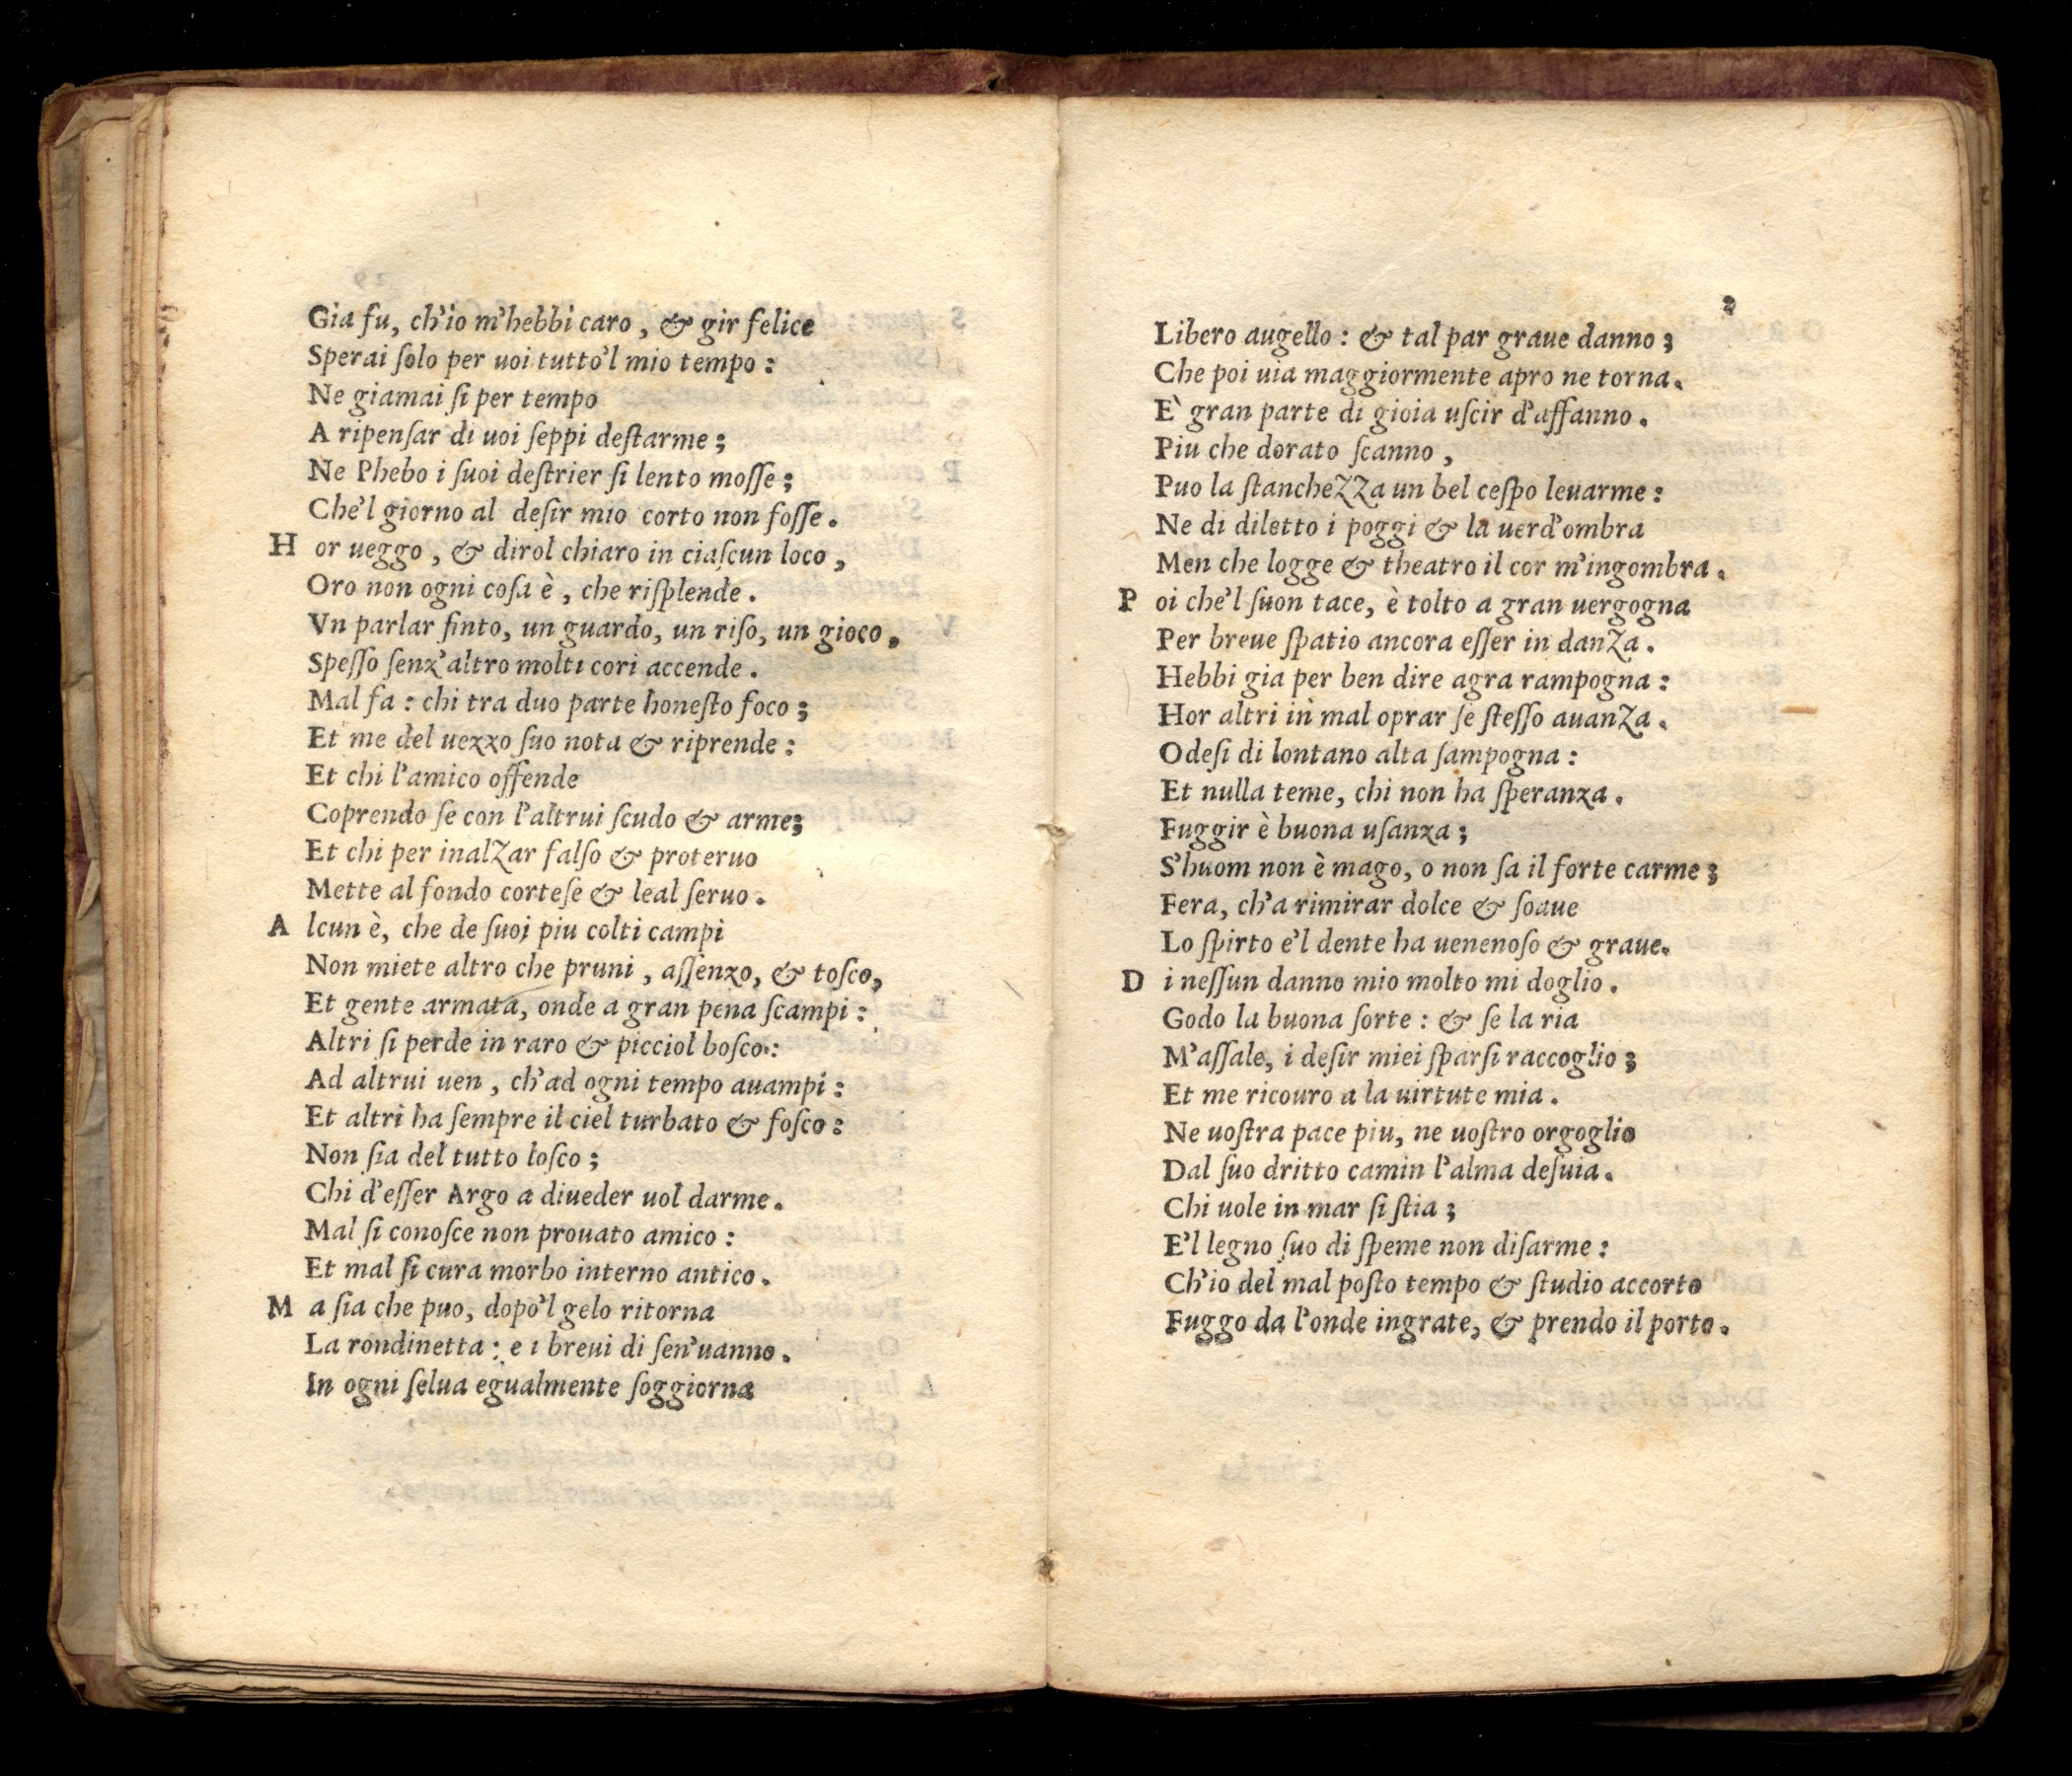 Gia fu, ch'io m'hebbi caro, & gir felice
Sperai ſolo per uoi tutto'l mio tempo:
Ne giamai ſi per tempo
A ripenſar di uoi ſeppi deſtarme;
Ne Phebo i ſuoi deſtrier ſi lento moſſe;
Che'l giorno al deſir mio corto non foſſe.
H or ueggo, & dirol chiaro in ciaſcun loco,
Oro non ogni coſa è, che riſplende.
Vn parlar finto, un guardo, un riſo, un gioco,
Speſſo ſenz'altro molti cori accende.
Mal fa: chi tra duo parte honeſto foco;
Et me del uezzo ſuo nota & riprende:
Et chi l'amico offende
Coprendo ſe con l'altrui ſcudo & arme;
Et chi per inalzar falſo & proteruo
Mette al fondo corteſe & leal ſeruo.
A lcun è, che de ſuoi piu colti campi
Non miete altro che pruni, aſſenzo, & toſco,
Et gente armata, onde a gran pena ſcampi:
Altri ſi perde in raro & picciol boſco:
Ad altrui uen, ch'ad ogni tempo auampi:
Et altri ha ſempre il ciel turbato & foſco:
Non ſia del tutto loſco;
Chi d'eſſer Argo a diueder uol darme.
Mal ſi conoſce non prouato amico:
Et mal ſi cura morbo interno antico.
M a ſia che puo, dopo'l gelo ritorna
La rondinetta: e i breui di ſen'uanno.
In ogni ſelua egualmente ſoggiorna
2
Libero augello: & tal par graue danno;
Che poi uia maggiormente apro ne torna.
E` gran parte di gioia uſcir d'affanno.
Piu che dorato ſcanno,
Puo la ſtanchezza un bel ceſpo leuarme:
Ne di diletto i poggi & la uerd'ombra
Men che logge & theatro il cor m'ingombra.
P oi che'l ſuon tace, è tolto a gran uergogna
Per breue ſpatio ancora eſſer in danza.
Hebbi gia per ben dire agra rampogna:
Hor altri in mal oprar ſe ſteſſo auanza.
Odeſi di lontano alta ſampogna:
Et nulla teme, chi non ha ſperanza.
Fuggir è buona uſanza;
S'huom non è mago, o non ſa il forte carme;
Fera, ch'a rimirar dolce & ſoaue
Lo ſpirto e'l dente ha uenenoſo & graue.
D i neſſun danno mio molto mi doglio.
Godo la buona ſorte: & ſe la ria
M'aſſale, i deſir miei ſparſi raccoglio;
Et me ricouro a la uirtute mia.
Ne uoſtra pace piu, ne uoſtro orgoglio
Dal ſuo dritto camin l'alma deſuia.
Chi uole in mar ſi ſtia;
E'l legno ſuo di ſpeme non diſarme:
Ch'io del mal poſto tempo & ſtudio accorto
Fuggo da l'onde ingrate, & prendo il porto.